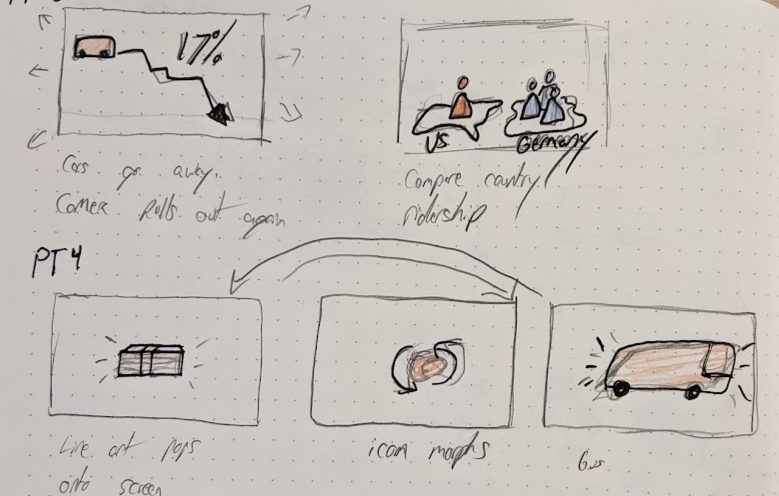 17%
US
Germany
Cars go away.
Camera Pulls out again
Compare country
ridership
PT 4
Line art pops
onto screen
icon morphs
Bus